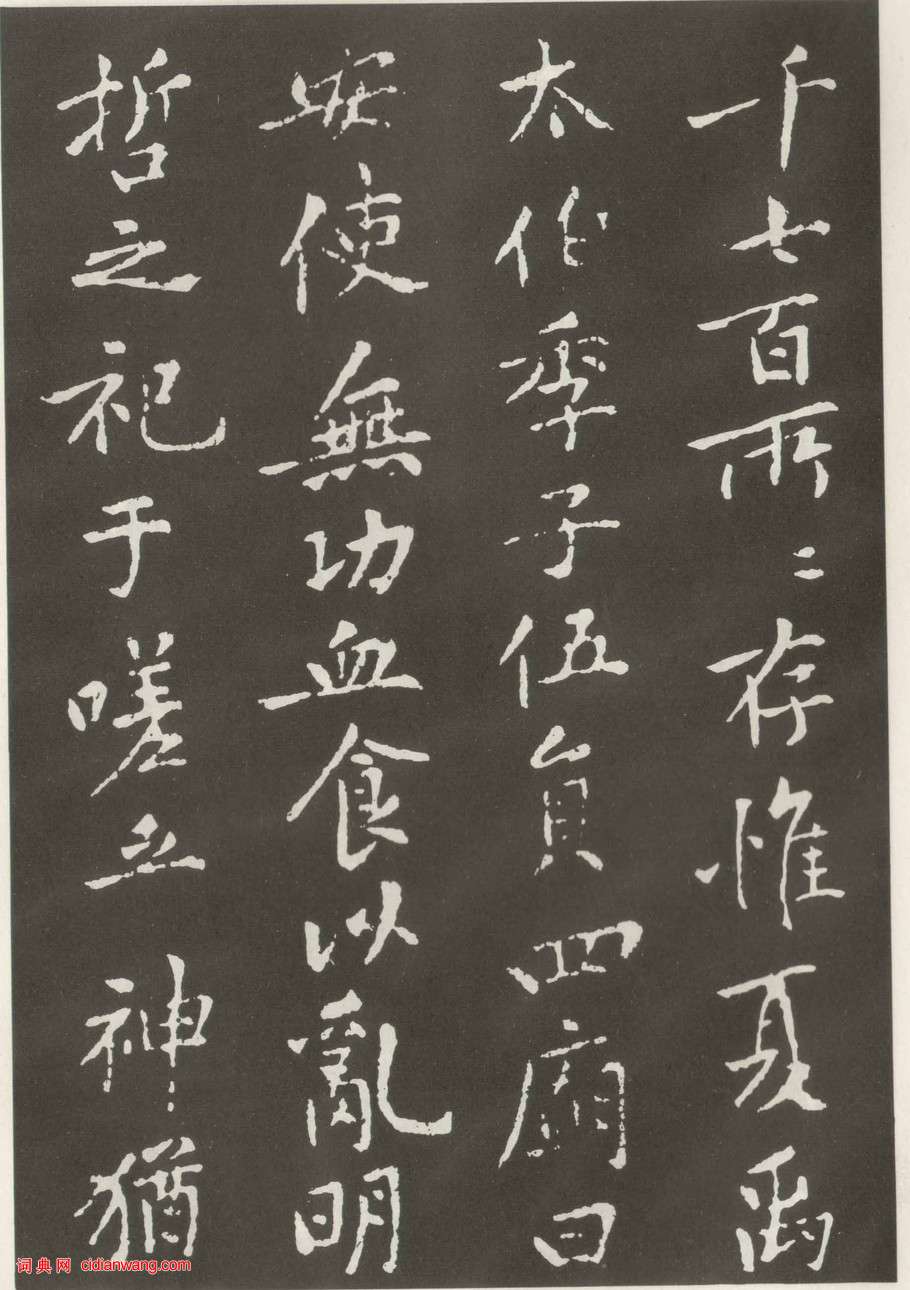 千七百所二存惟夏禹
太伯季子伍員四廟曰
安使無功血食以亂明
哲之祀于嗟乎神猶
词典网 cidianwang.com